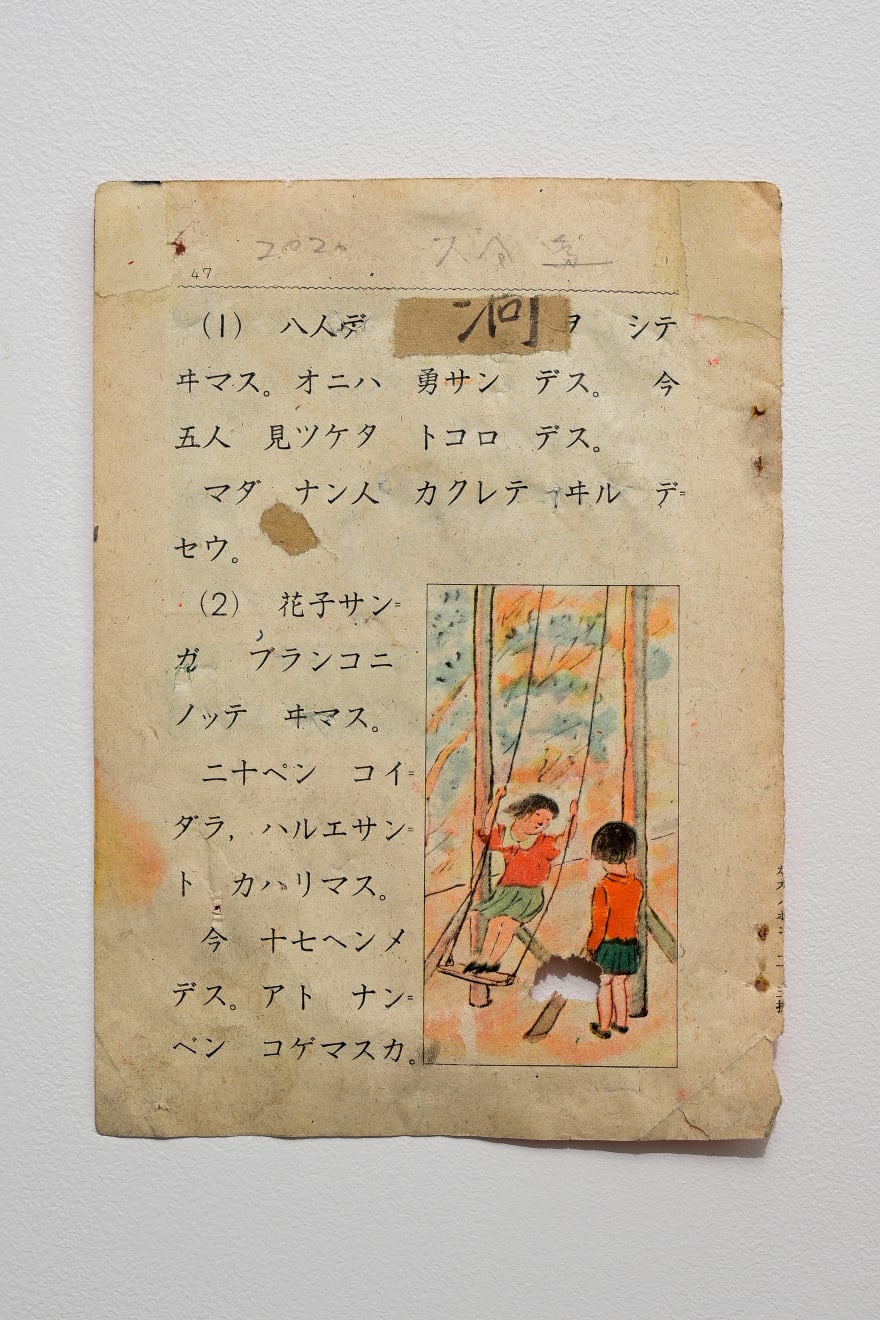 2020
47
(1) 八人デ ヲ シテ
ヰマス。オニハ 勇サン デス。 今
五人 見ツケタ トコロ デス。
マダ ナン人 カクレテ ヰル デ=
セウ。
(2) 花子サン=
ガ ブランコニ
ノッテ ヰマス。
二十ペン コイ=
ダラ, ハルエサン=
ト カハリマス。
今 十七ヘンメ
デス。アト ナン=
ベン コゲマスカ。